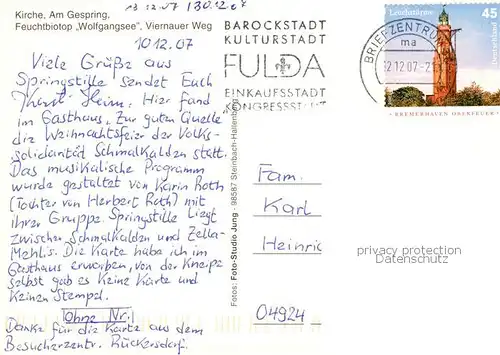 Kirche, Am Gespring,
Feuchtbiotop „Wolfgangsee", Viernauer Weg
13.12.07
10.12.07
Viele Grüße aus
Springstille sendet Euch
Horst Heim. Hier fand
im Gasthaus „Zur guten Quelle"
die Weihnachtsfeier der Volks-
solidarität Schmalkalden statt.
Das musikalische Programm
wurde gestaltet von Karin Roth
(Tochter von Herbert Roth) mit
ihrer Gruppe. Springstille liegt
zwischen Schmalkalden und Zella-
Mehlis. Die Karte habe ich im
Gasthaus erworben, von der Kneipe
selbst gab es keine Karte und
keinen Stempel.
Ohne Nr.
Danke für die Karte aus dem
Besucherzentr. Rückersdorf.
Fotos: Foto-Studio Jung · 98587 Steinbach-Hallenberg
BAROCKSTADT
KULTURSTADT
FULDA
EINKAUFSSTADT
KONGRESSSTADT
BRIEFZENTRUM
ma
12.12.07-2
Leuchttürme
45
Deutschland
BREMERHAVEN OBERFEUER
Fam.
Karl
Heinric
privacy protection
Datenschutz
04924